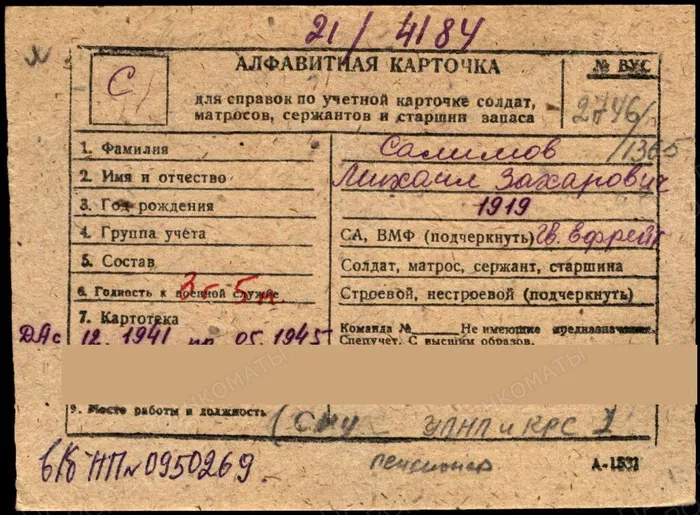 21/4184
АЛФАВИТНАЯ КАРТОЧКА
№ ВУС
С
для справок по учетной карточке солдат,
матросов, сержантов и старшин запаса
2746/
/1365
1. Фамилия Салимов
2. Имя и отчество Михаил Захарович
3. Год рождения 1919
4. Группа учета СА, ВМФ (подчеркнуть) Гв. Ефрейт
5. Состав Солдат, матрос, сержант, старшина
6. Годность к военной службе Строевой, нестроевой (подчеркнуть)
3г. 5
7. Картотека Команда №____Не имеющие предназначен.
Спецучет. С высшим образов.
ДАс 12. 1941 по 05. 1945
9. Место работы и должность (СМУ УПНП и КРС
в/б НП№0950269.
пенсионер
А-1531